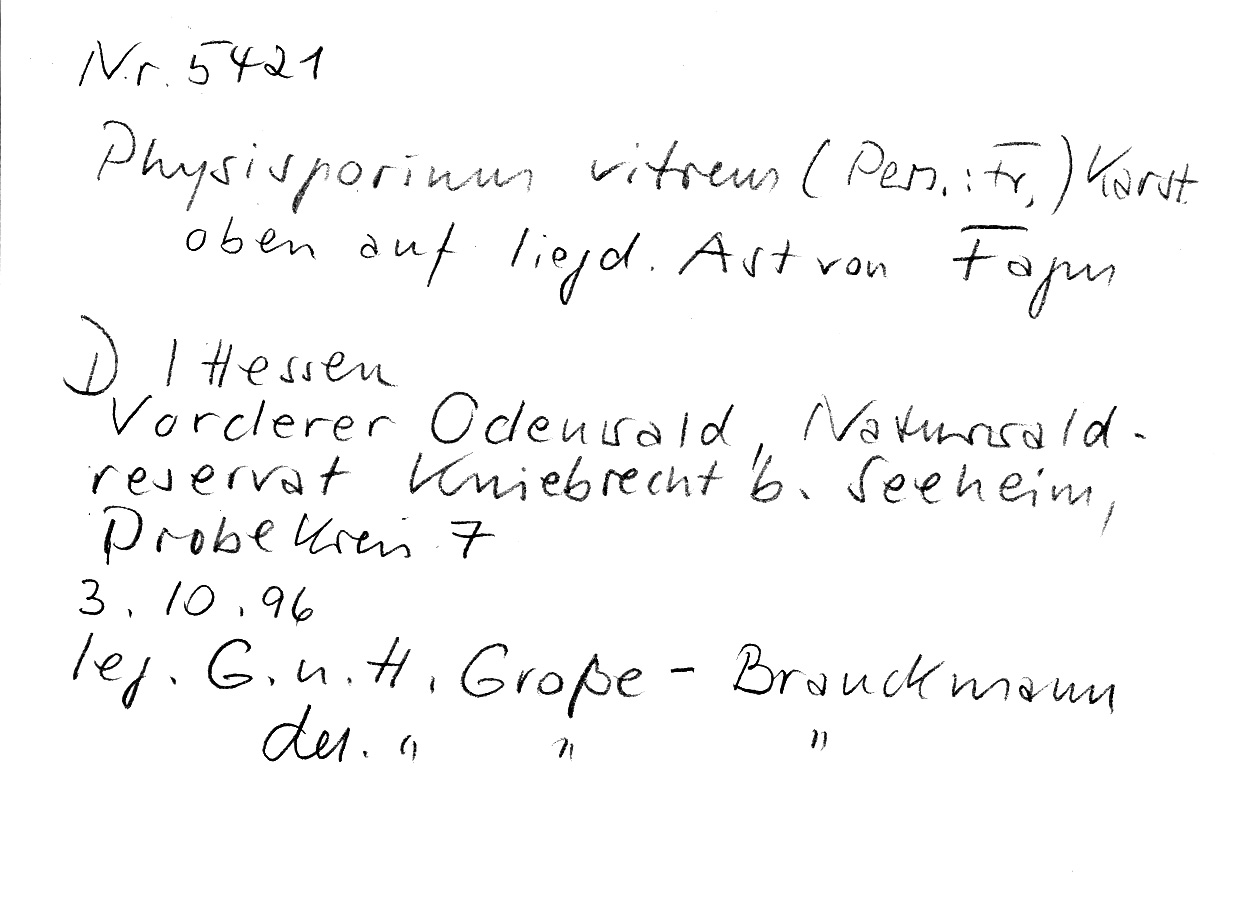 Nr. 5421
Physisporinus vitreus (Pers. : Fr.) Karst.
oben auf liegd. Ast von Fagus
D / Hessen
Vorderer Odenwald, Naturwald-
reservat Kniebrecht b. Seeheim,
Probekreis 7
3. 10. 96
leg. G. u. H. Große - Brauckmann
det. " " "